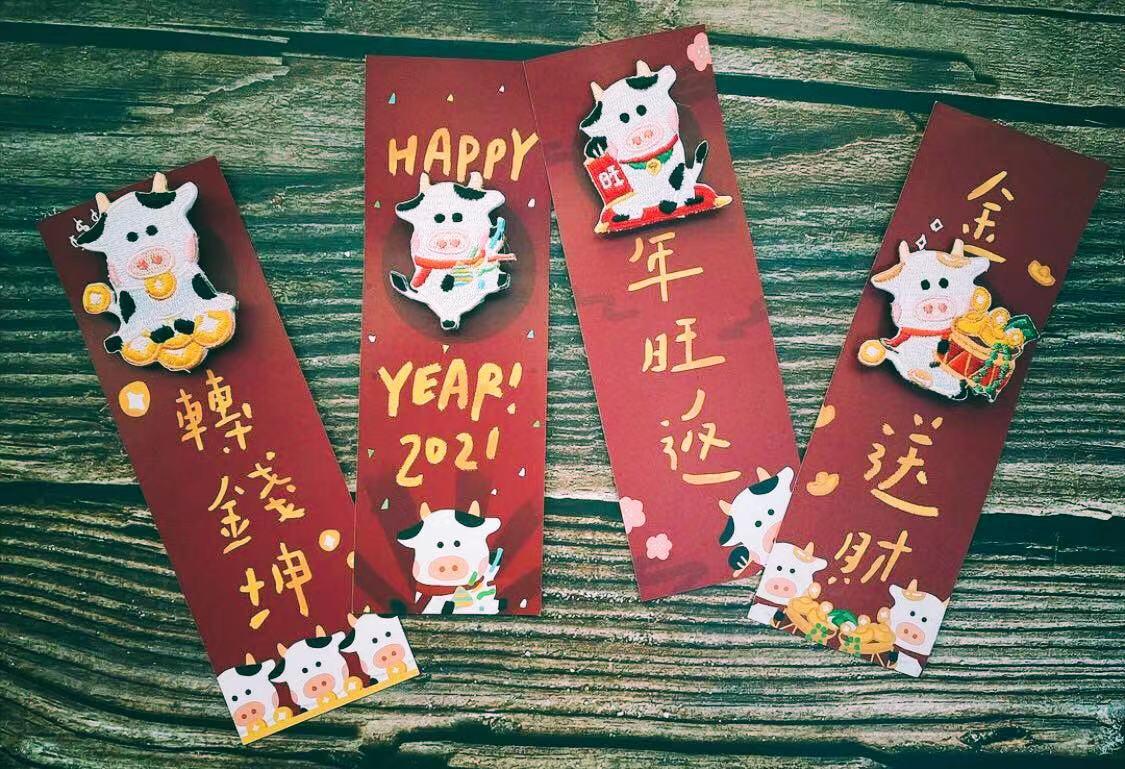 轉錢坤
HAPPY
YEAR!
2021
旺
年旺返
金送財